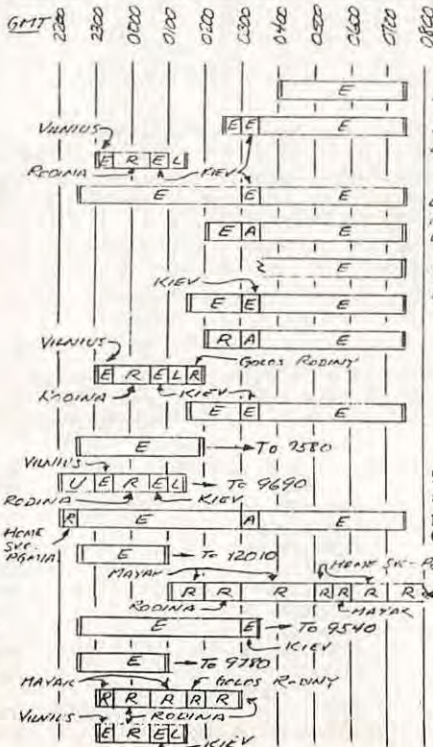 GMT 2200 2300 0000 0100 0200 0300 0400 0500 0600 0700 0800
E
VILNIUS E E E
E R E L
RODINA KIEV
E E E
E A E
E
KIEV
E E E
VILNIUS R A E
GOLOS RODINY
E R E L R
RODINA KIEV
E E E
E TO 9580
VILNIUS
U E R E L TO 9690
RODINA KIEV
R E A E
HOME SVC-
E TO 12010
MAYAK HOME SVC-
R R R R R R R
RODINA MAYAK
E E TO 9540
KIEV
E TO 9780
MAYAK GOLOS RODINY
R R R R R
VILNIUS RODINA
E R E L
KIEV